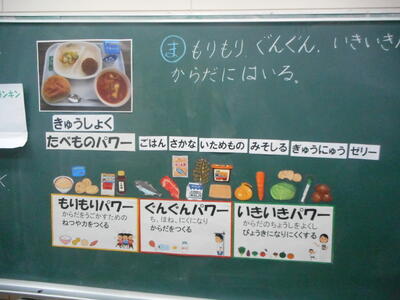 ま もりもり、ぐんぐん、いきいき
からだにはいる。
きゅうしょく
たべものパワー
ごはん さかな いためもの みそしる ぎゅうにゅう ゼリー
もりもりパワー
からだをうごかすための
ねつや力をつくる
ぐんぐんパワー
ち、ほね、にくになり
からだをつくる
いきいきパワー
からだのちょうしをよくし
びょうきになりにくくする